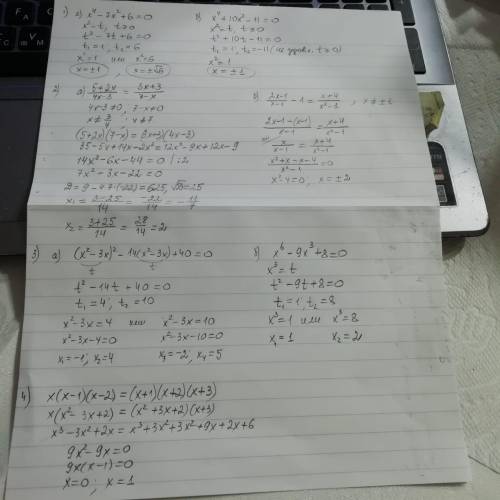 1) а) x⁴ - 7x² + 6 = 0
x² = t, t ≥ 0
t² - 7t + 6 = 0
t₁ = 1, t₂ = 6
x² = 1 или x² = 6
x = ±1, x = ±√6
б) x⁴ + 10x² - 11 = 0
x² = t, t ≥ 0
t² + 10t - 11 = 0
t₁ = 1, t₂ = -11 (не удовл. t ≥ 0)
x² = 1
x = ±1
2) а) (5+2x)/(4x-3) = (3x+3)/(7-x)
4x-3 ≠ 0, 7-x ≠ 0
x ≠ 3/4, x ≠ 7
(5+2x)(7-x) = (3x+3)(4x-3)
35 - 5x + 14x - 2x² = 12x² - 9x + 12x - 9
14x² - 6x - 44 = 0 | :2
7x² - 3x - 22 = 0
D = 9 - 4·7·(-22) = 625, √D = 25
x₁ = (3-25)/14 = -22/14 = -11/7
x₂ = (3+25)/14 = 28/14 = 2
б) (2x-1)/(x-1) - 1 = (x+4)/(x²-1), x ≠ ±1
(2x-1-(x-1))/(x-1) = (x+4)/(x²-1)
x/(x-1) = (x+4)/(x²-1)
(x²+x-x-4)/(x²-1) = 0
x²-4=0, x = ±2
3) а) (x²-3x)² - 14(x²-3x) + 40 = 0
t t
t² - 14t + 40 = 0
t₁ = 4, t₂ = 10
x² - 3x = 4 или x² - 3x = 10
x² - 3x - 4 = 0 x² - 3x - 10 = 0
x₁ = -1, x₂ = 4 x₃ = -2, x₄ = 5
б) x⁶ - 9x³ + 8 = 0
x³ = t
t² - 9t + 8 = 0
t₁ = 1, t₂ = 8
x³ = 1 или x³ = 8
x₁ = 1 x₂ = 2
4) x(x-1)(x-2) = (x+1)(x+2)(x+3)
x(x² - 3x + 2) = (x² + 3x + 2)(x+3)
x³ - 3x² + 2x = x³ + 3x² + 3x² + 9x + 2x + 6
9x² - 9x = 0
9x(x-1) = 0
x = 0; x = 1